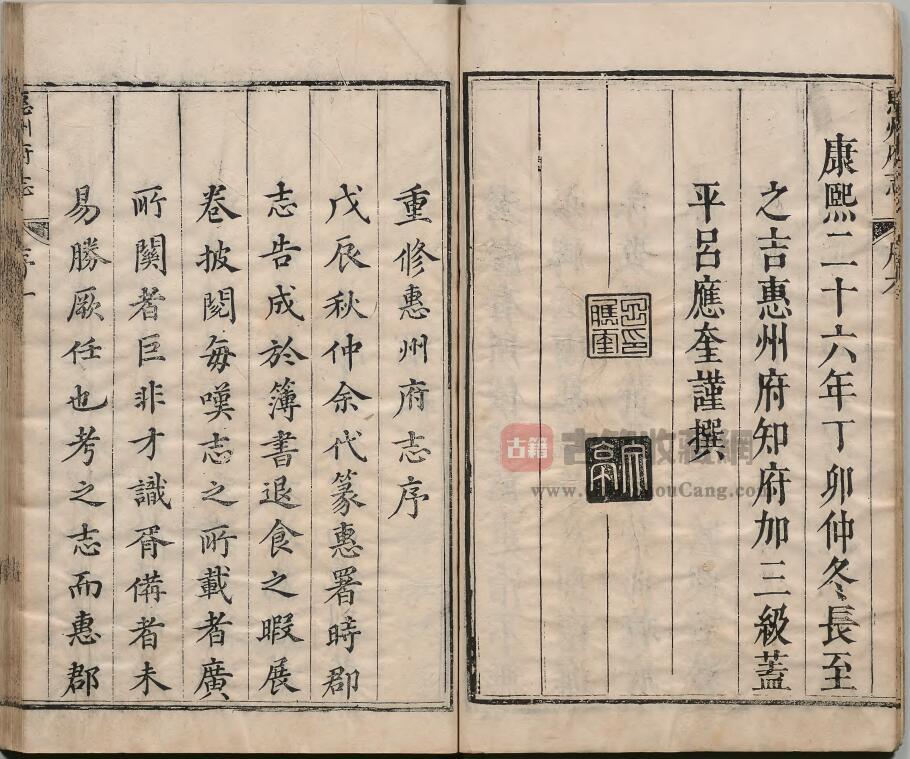 惠州府志
康熙二十六年丁卯仲冬長至
之吉惠州府知府加三級蓋
平呂應奎謹撰
古籍
古籍收藏網
重修惠州府志序
戊辰秋仲余代篆惠署時郡
志告成於簿書退食之暇展
卷披閱每嘆志之所載者廣
所關者巨非才識胥備者未
易勝厥任也考之志而惠郡
惠州府志
序一